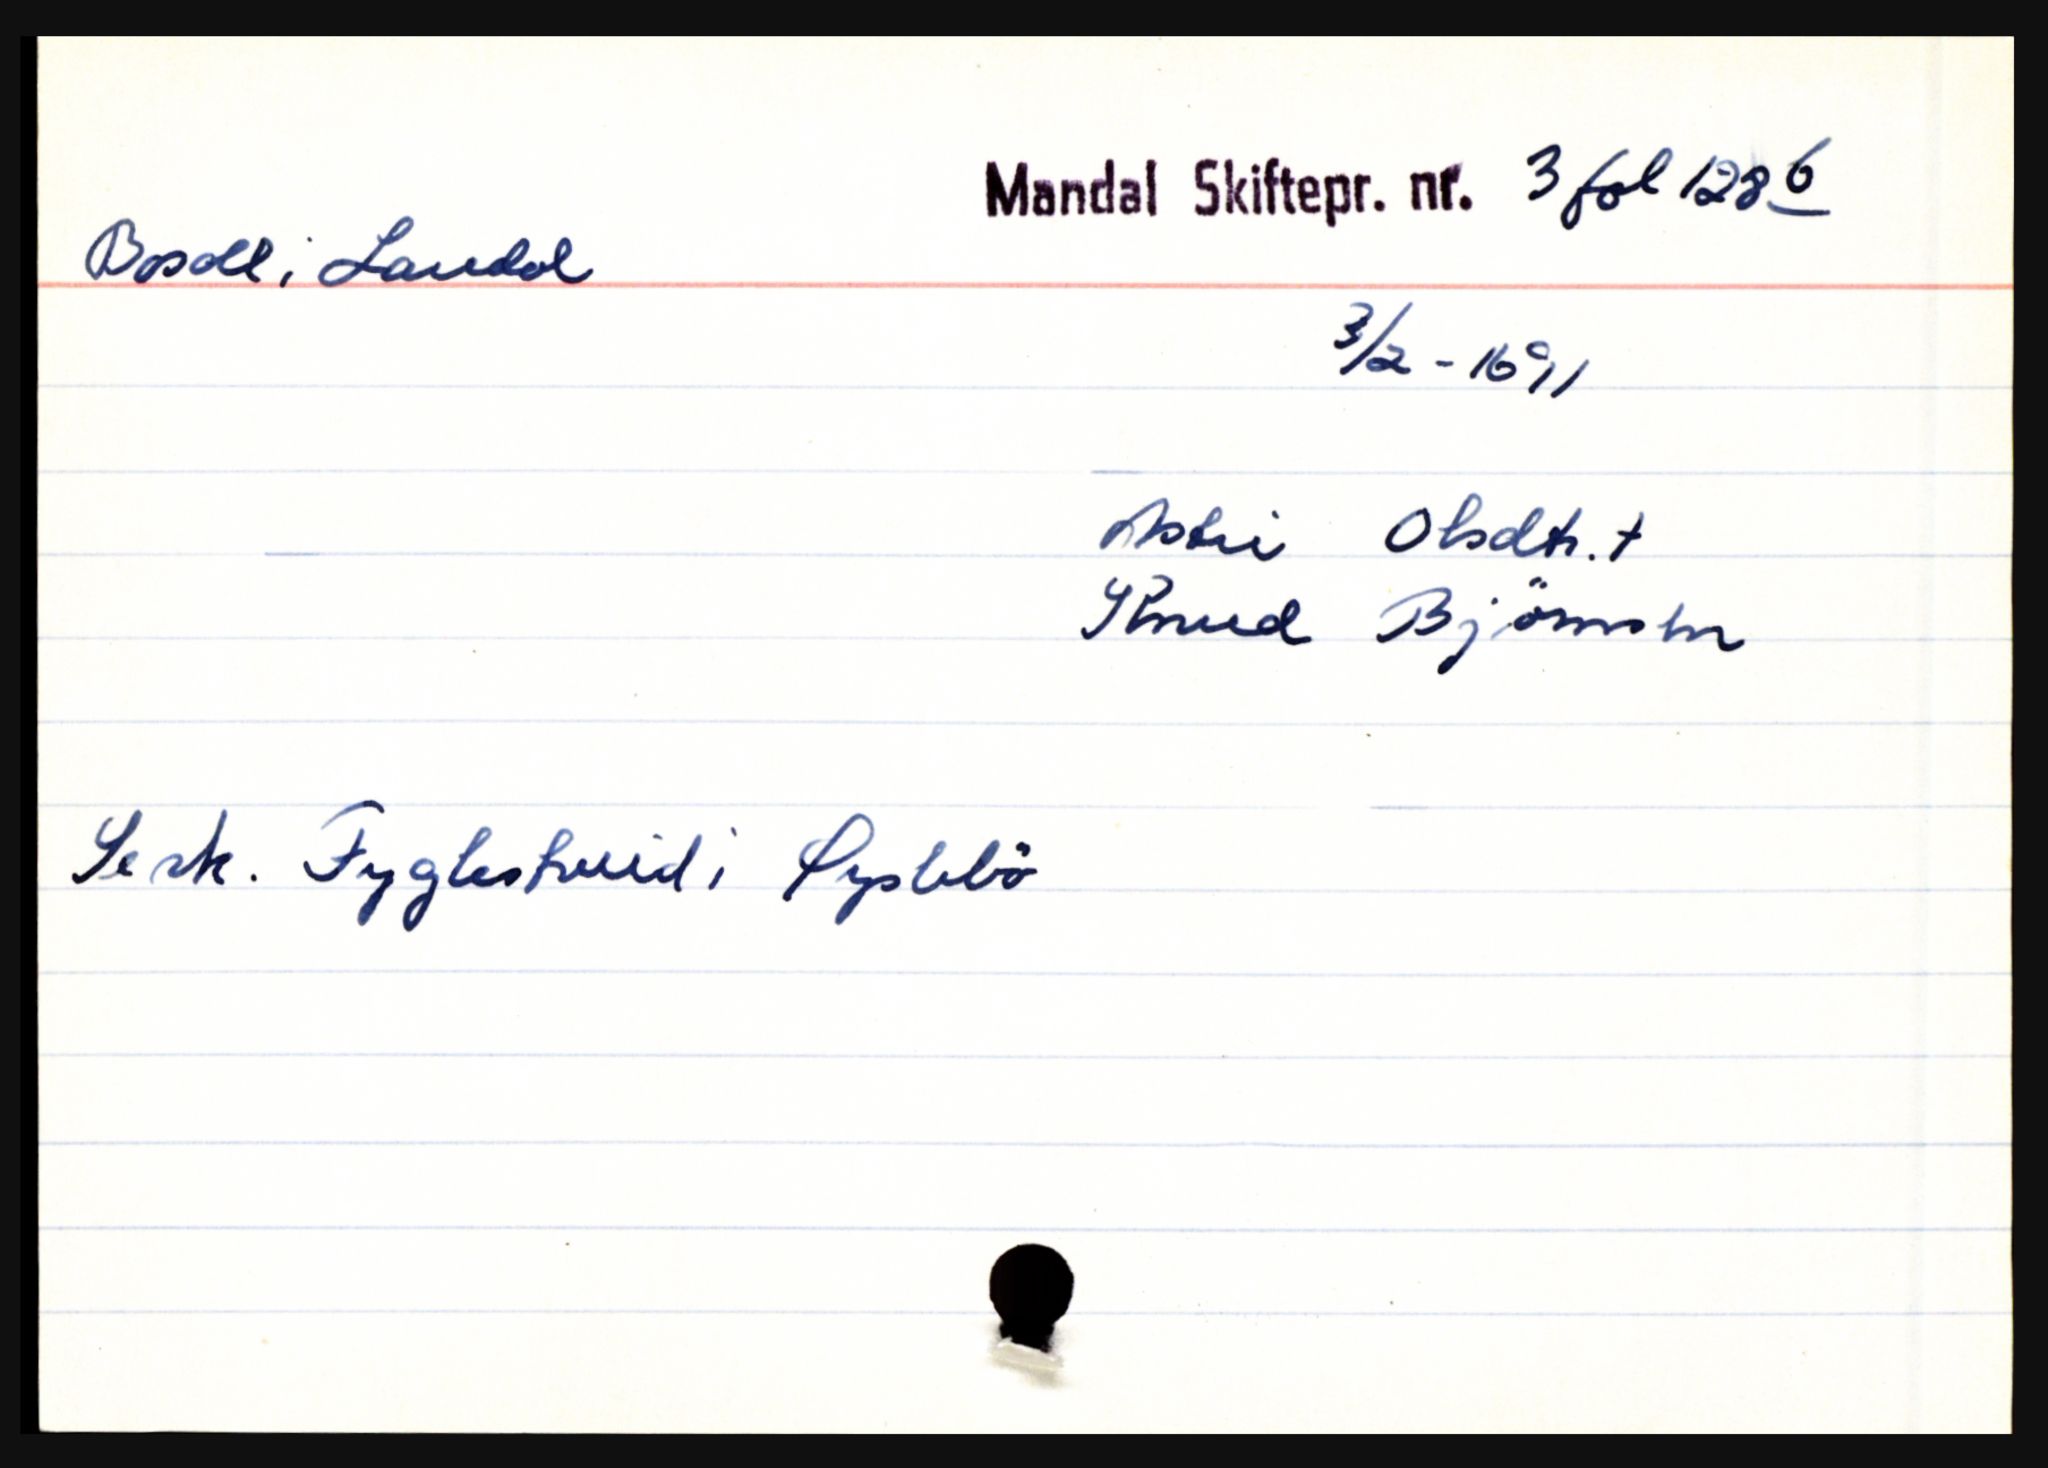 Mandal Skiftepr. nr. 3 fol 128 b
Bosdll i Laudal
3/2 - 1691
Astri Olsdtr. †
Knud Björnsen
Se sk. Fyglestveid i Öyslebö